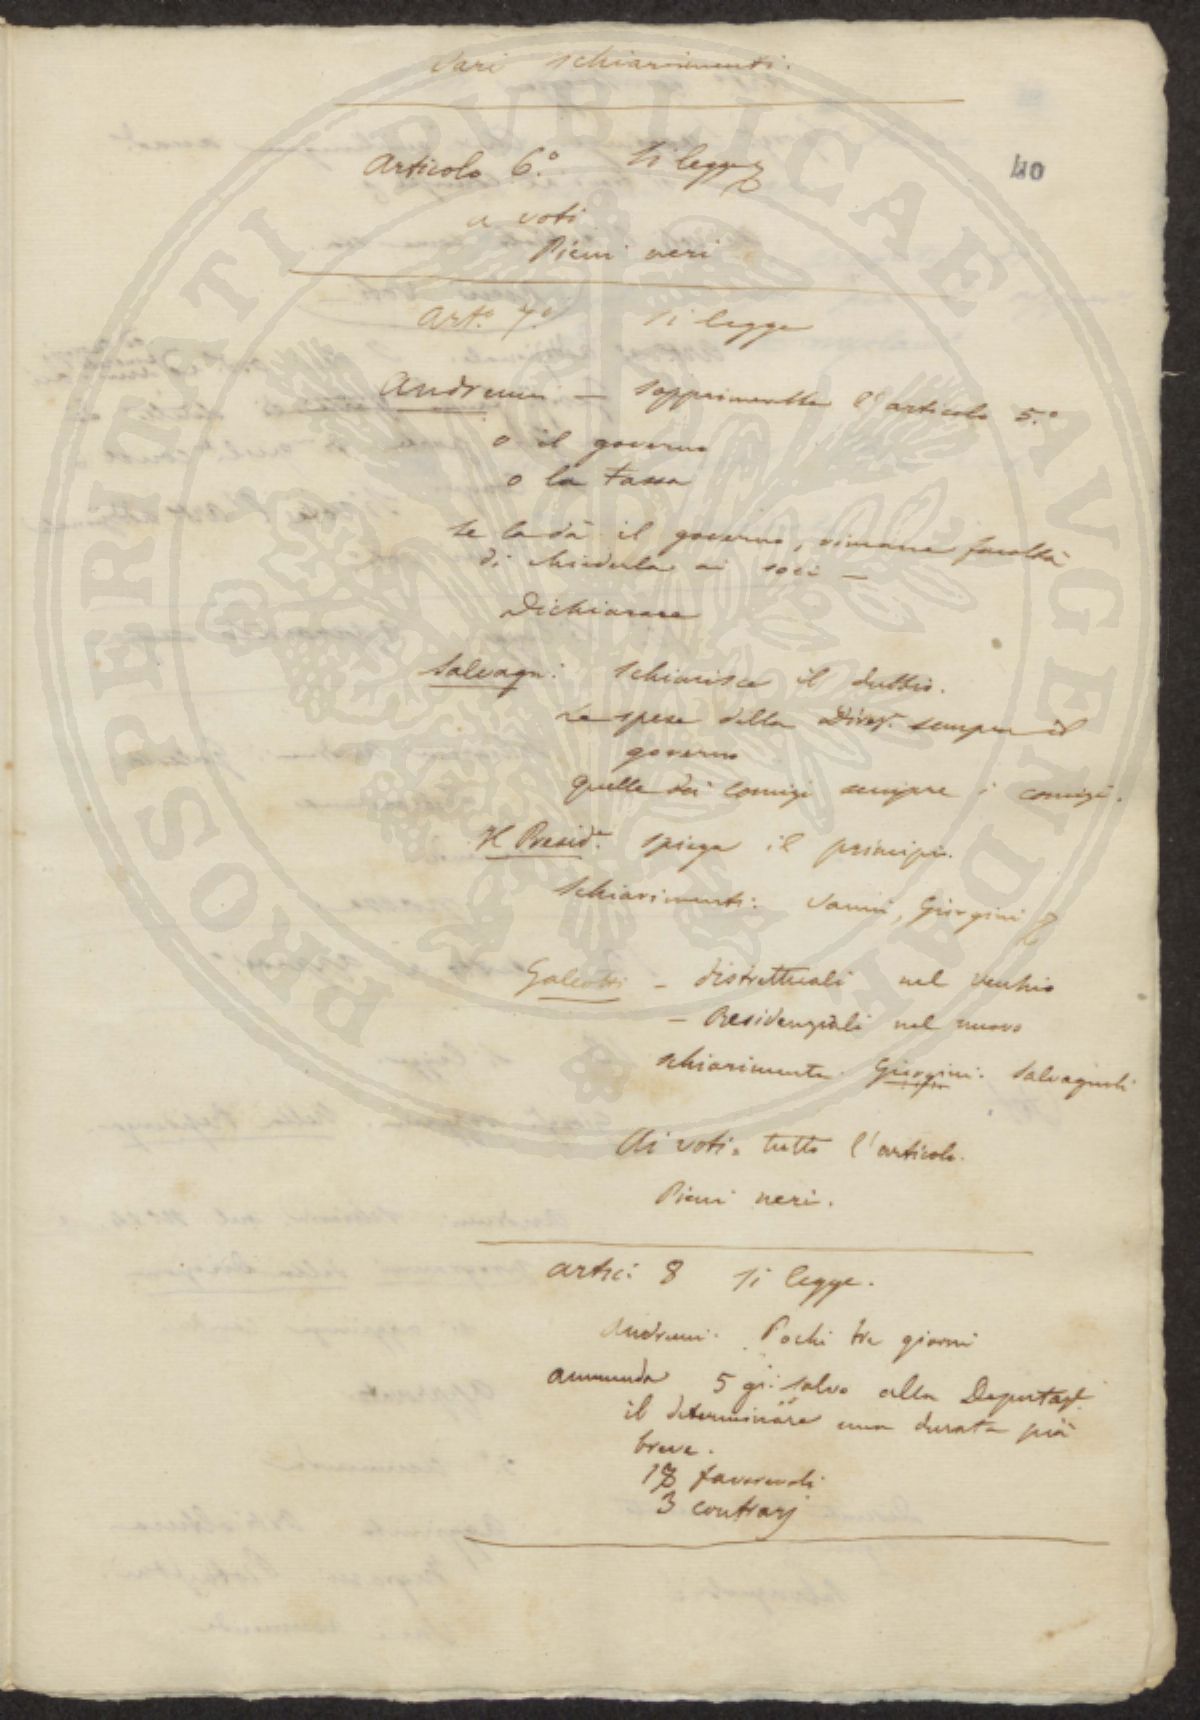 Vari schiarimenti.
40
Articolo 6.° Si legge
a voti
Pieni neri
Art.° 7.° Si legge
Andreucci — sopprimerebbe l'articolo 5.°
o il governo
o la tassa
se la dà il governo, rimane facoltà
di chiederla ai soci —
Dichiarare
Salvagn: schiarisce il dubbio.
Le spese della Direz. sempre il
governo
quelle dei Comizi sempre i comizi.
Il Presid.e spiega il principio.
Schiarimenti: Vanni, Giorgini
Galeotti — distrettuali nel vecchio
— Residenziali nel nuovo
schiarimento. Giorgini. Salvagnoli
Ai voti. tutto l'articolo.
Pieni neri.
artic: 8 Si legge.
Andreucci. Pochi tre giorni
ammenda 5 gi: salvo alla Deputaz.
il determinare una durata più
breve.
18 favorevoli
3 contrarj
PROSPERITATI PVBLICAE AVGENDAE